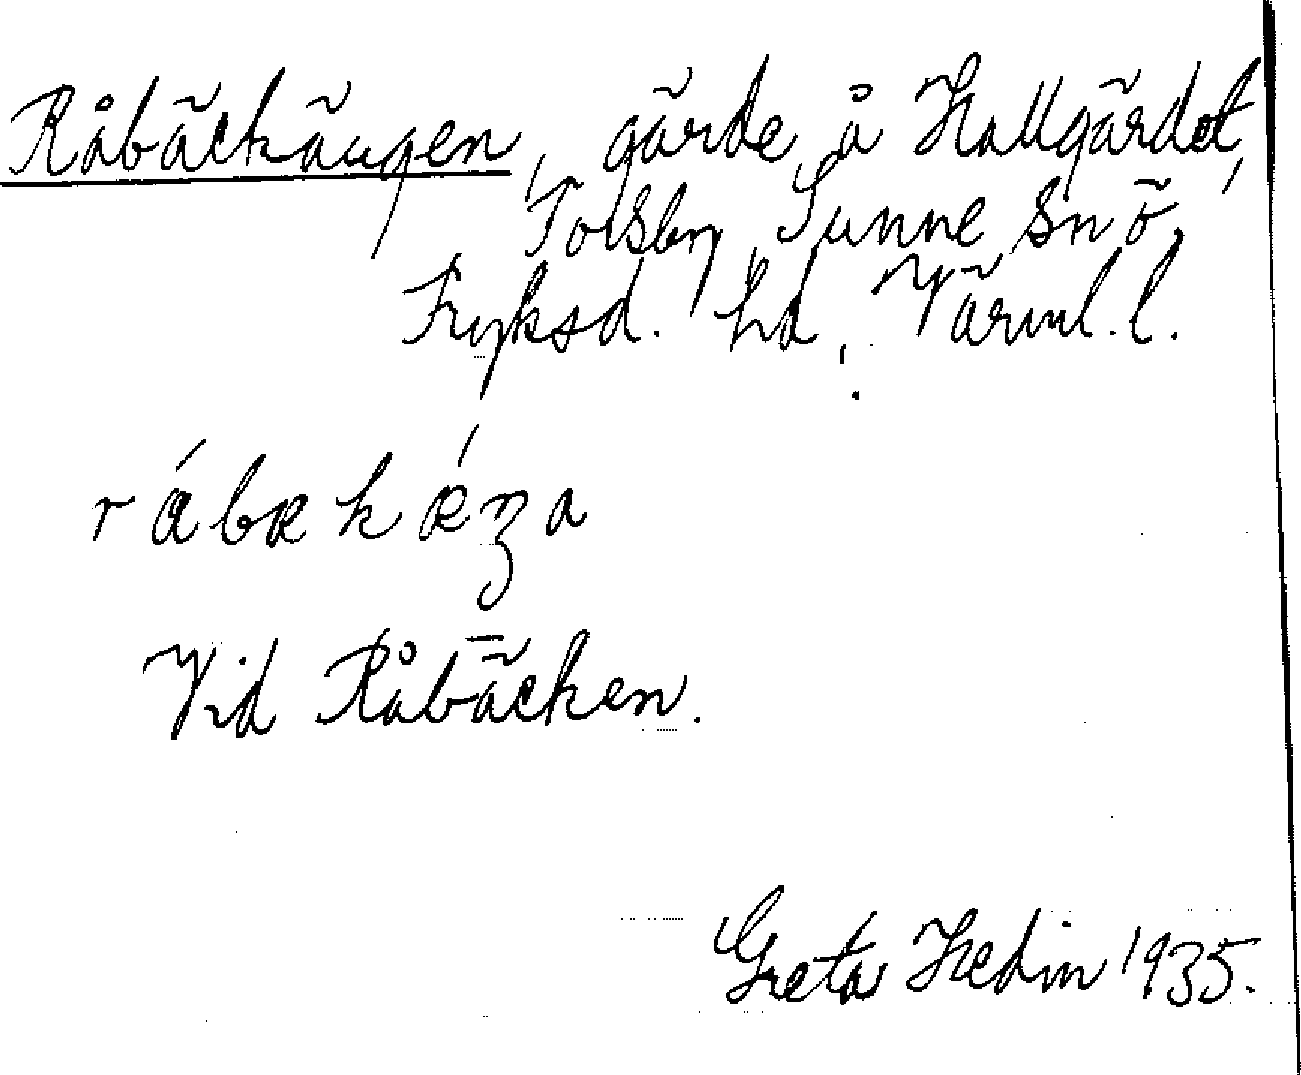 Råbäckängen, gärde å Hallgärdet,
Tolsby, Sunne sn ö,
Fryksd. hd, Värml. l.
rábækǽŋa
Vid Råbäcken.
Greta Hedin 1935.